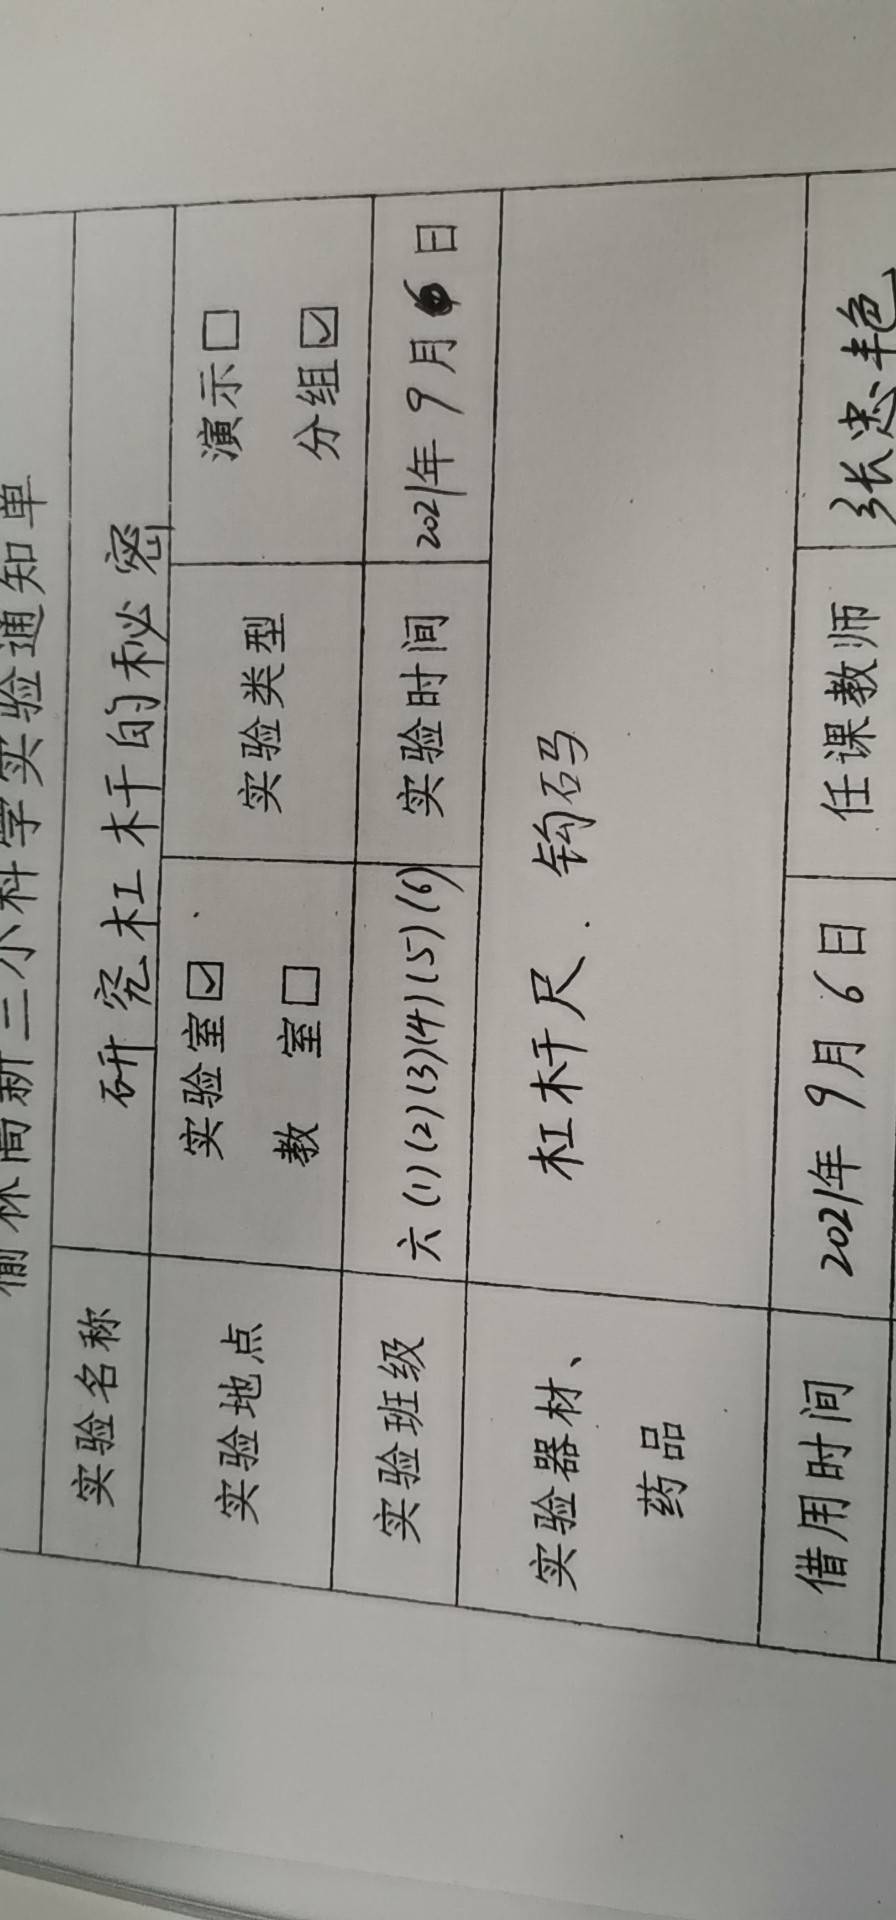 榆林高新三小科学实验通知单
实验名称 研究杠杆的秘密
实验地点 实验室☑ 教 室□ 实验类型 演示□ 分组☑
实验班级 六(1)(2)(3)(4)(5)(6) 实验时间 2021年9月6日
实验器材、药品 杠杆尺.钩码
借用时间 2021年9月6日 任课教师 张忠艳